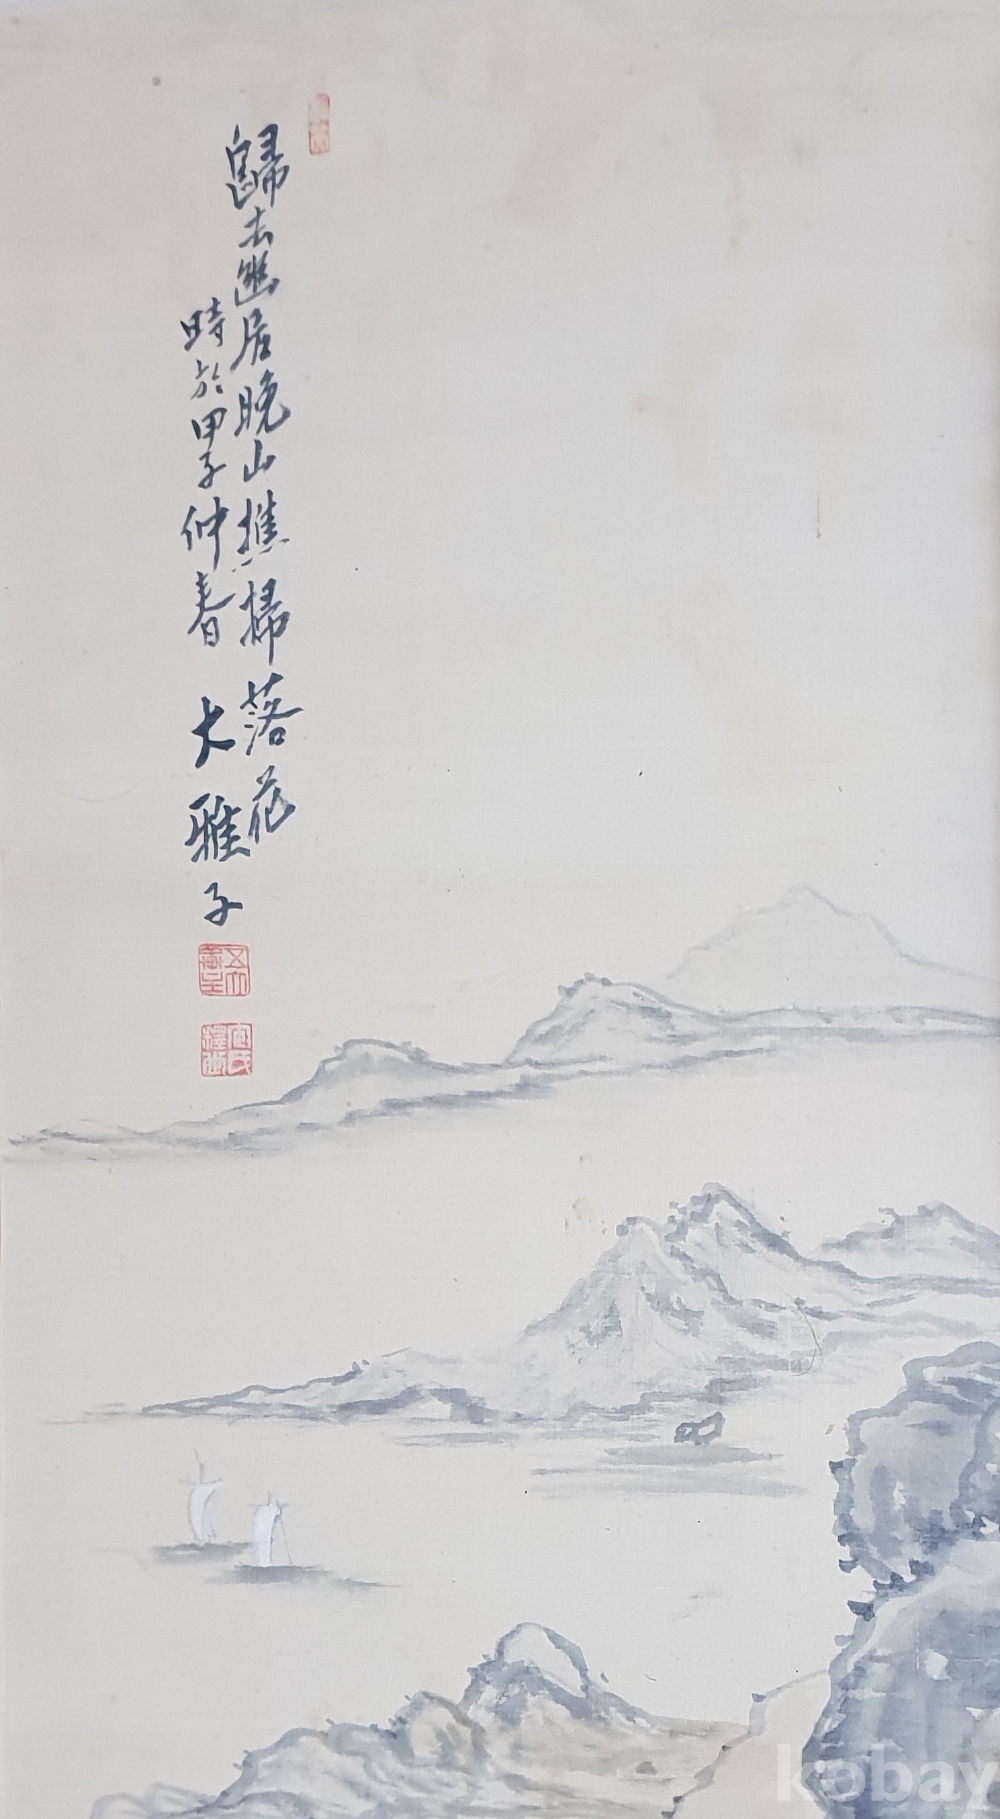 歸去幽居晩山樵掃落花
時於甲子仲春 大雅子
kobay